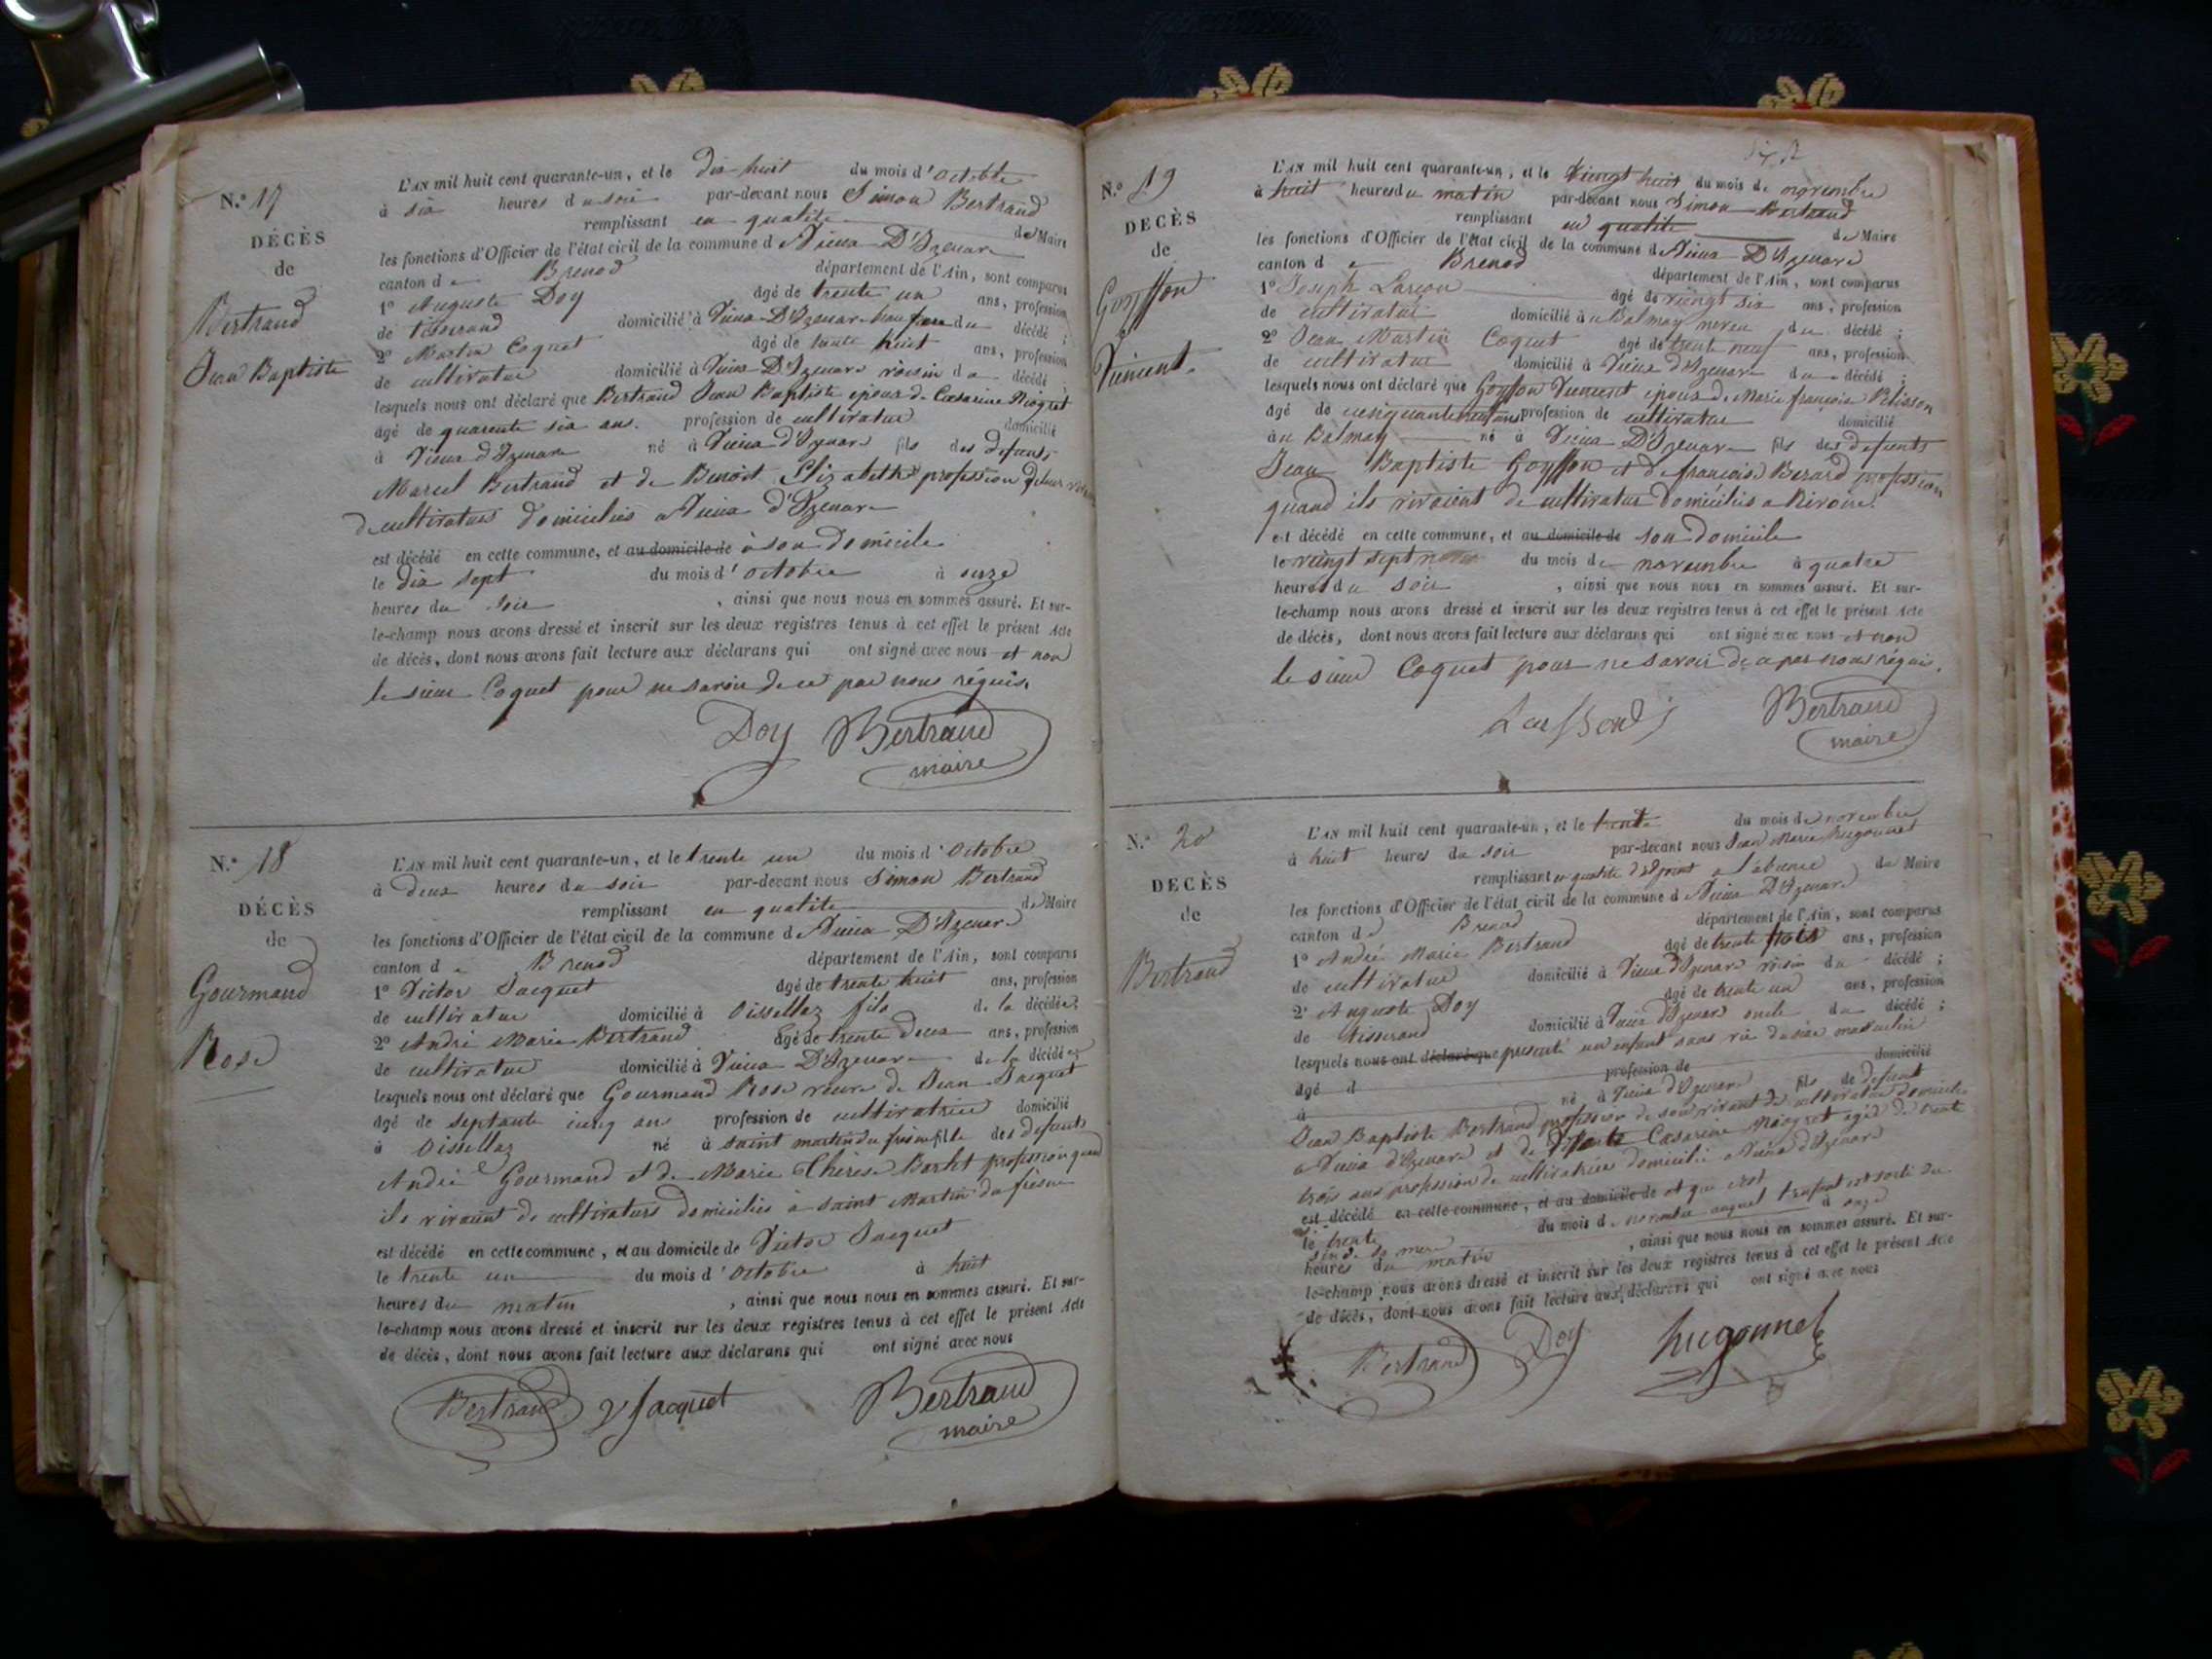 N.° 17
DÉCÈS
de
Bertrand
Jean Baptiste
L'AN mil huit cent quarante-un, et le dix huit du mois d'octobre
à six heures du soir par-devant nous Simon Bertrand
remplissant en qualité de Maire
les fonctions d'Officier de l'état civil de la commune de Vieux D'Izenave
canton de Brenod département de l'Ain, sont comparus
1° Auguste Doy agé de trente un ans, profession
de tisserand domicilié à Vieux D'Izenave beau frere du décédé ;
2° Martin Coquet agé de trente huit ans, profession
de cultivateur domicilié à Vieux D'Izenave voisin du décédé ;
lesquels nous ont déclaré que Bertrand Jean Baptiste epoux de Cæsarine Niogret
agé de quarente six ans. profession de cultivateur domicilié
à Vieux d'Izenave né à Vieux d'Izenave fils des defunts
Marcel Bertrand et de Benoit Elizabeth profession
de cultivateurs domiciliés a Vieux d'Izenave
est décédé en cette commune, et au domicile de à son domicile
le dix sept du mois d'octobre à onze
heures du soir , ainsi que nous nous en sommes assuré. Et sur-
le-champ nous avons dressé et inscrit sur les deux registres tenus à cet effet le présent Acte
de décès, dont nous avons fait lecture aux déclarans qui ont signé avec nous et non
le sieur Coquet pour ne savoir de ce par nous réquis.
Doy Bertrand
maire
N.° 18
DÉCÈS
de
Gourmand
Rose
L'AN mil huit cent quarante-un, et le trente un du mois d'octobre
à deux heures du soir par-devant nous Simon Bertrand
remplissant en qualité de Maire
les fonctions d'Officier de l'état civil de la commune de Vieux D'Izenave
canton de Brenod département de l'Ain, sont comparus
1° Victor Jacquet agé de trente huit ans, profession
de cultivateur domicilié à Oissellaz fils de la décédée ;
2° André Marie Bertrand agé de trente deux ans, profession
de cultivateur domicilié à Vieux D'Izenave de la décédée
lesquels nous ont déclaré que Gourmand Rose veuve de Jean Jacquet
agé de septante cinq ans profession de cultivatrice domicilié
à Oissellaz né à saint martin du frêsne fille des defunts
André Gourmand et de Marie Thérèse profession quand
ils vivaient de cultivateurs domiciliés à saint Martin du frêsne
est décédé en cette commune, et au domicile de Victor Jacquet
le trente un du mois d'octobre à huit
heures du matin , ainsi que nous nous en sommes assuré. Et sur-
le-champ nous avons dressé et inscrit sur les deux registres tenus à cet effet le présent Acte
de décès, dont nous avons fait lecture aux déclarans qui ont signé avec nous
Bertrand V Jacquet Bertrand
maire
N.° 19
DÉCÈS
de
Goyffon
Vincent.
L'AN mil huit cent quarante-un, et le vingt huit du mois de novembre
à huit heures du matin par-devant nous Simon Bertrand
remplissant en qualité de Maire
les fonctions d'Officier de l'état civil de la commune de Vieux D'Izenave
canton de Brenod département de l'Ain, sont comparus
1° Joseph agé de vingt six ans, profession
de cultivateur domicilié à u Balmay neveu du décédé ;
2° Jean Martin Coquet agé de trente neuf ans, profession
de cultivateur domicilié à Vieux d'Izenave du décédé ;
lesquels nous ont déclaré que Goyffon Vincent epoux de Marie françoise Pelisson
agé de profession de cultivateur domicilié
àu Balmay né à Vieux D'Izenave fils des defunts
Jean Baptiste Goyffon et de françoise Berard profession
quand ils vivoient de cultivateur domiciliés a
est décédé en cette commune, et au domicile de son domicile
le vingt sept du mois de novembre à quatre
heures du soir , ainsi que nous nous en sommes assuré. Et sur-
le-champ nous avons dressé et inscrit sur les deux registres tenus à cet effet le présent Acte
de décès, dont nous avons fait lecture aux déclarans qui ont signé avec nous et non
le sieur Coquet pour ne savoir de ce par nous réquis.
Bertrand
maire
N.° 20
DÉCÈS
de
Bertrand
L'AN mil huit cent quarante-un, et le trente du mois de novembre
à huit heures du soir par-devant nous Jean Marie hugonnet
remplissant en qualité d'adjoint a l'absence de Maire
les fonctions d'Officier de l'état civil de la commune de Vieux D'Izenave
canton de Brenod département de l'Ain, sont comparus
1° André Marie Bertrand agé de trente trois ans, profession
de cultivateur domicilié à Vieux d'Izenave voisin du décédé ;
2° Auguste Doy agé de trente un ans, profession
de tisserand domicilié à Vieux d'Izenave oncle du décédé ;
lesquels nous ont déclaré que presenté un enfant sans vie du sèxe masculin
agé d profession de domicilié
à né à Vieux d'Izenave fils de defunt
Jean Baptiste Bertrand profession de son vivant de cultivateur domicilié
a Vieux d'Izenave et de Cæsarine Niogret agée de trente
trois ans profession de cultivatrice domicilié a Vieux d'Izenave
est décédé en cette commune, et au domicile de et que c'est
le trente du mois de novembre auquel l'enfant est sorti du
sein de sa mere à onze
heures du matin , ainsi que nous nous en sommes assuré. Et sur-
le-champ nous avons dressé et inscrit sur les deux registres tenus à cet effet le présent Acte
de décès, dont nous avons fait lecture aux déclarans qui ont signé avec nous
Bertrand Doy hugonnet